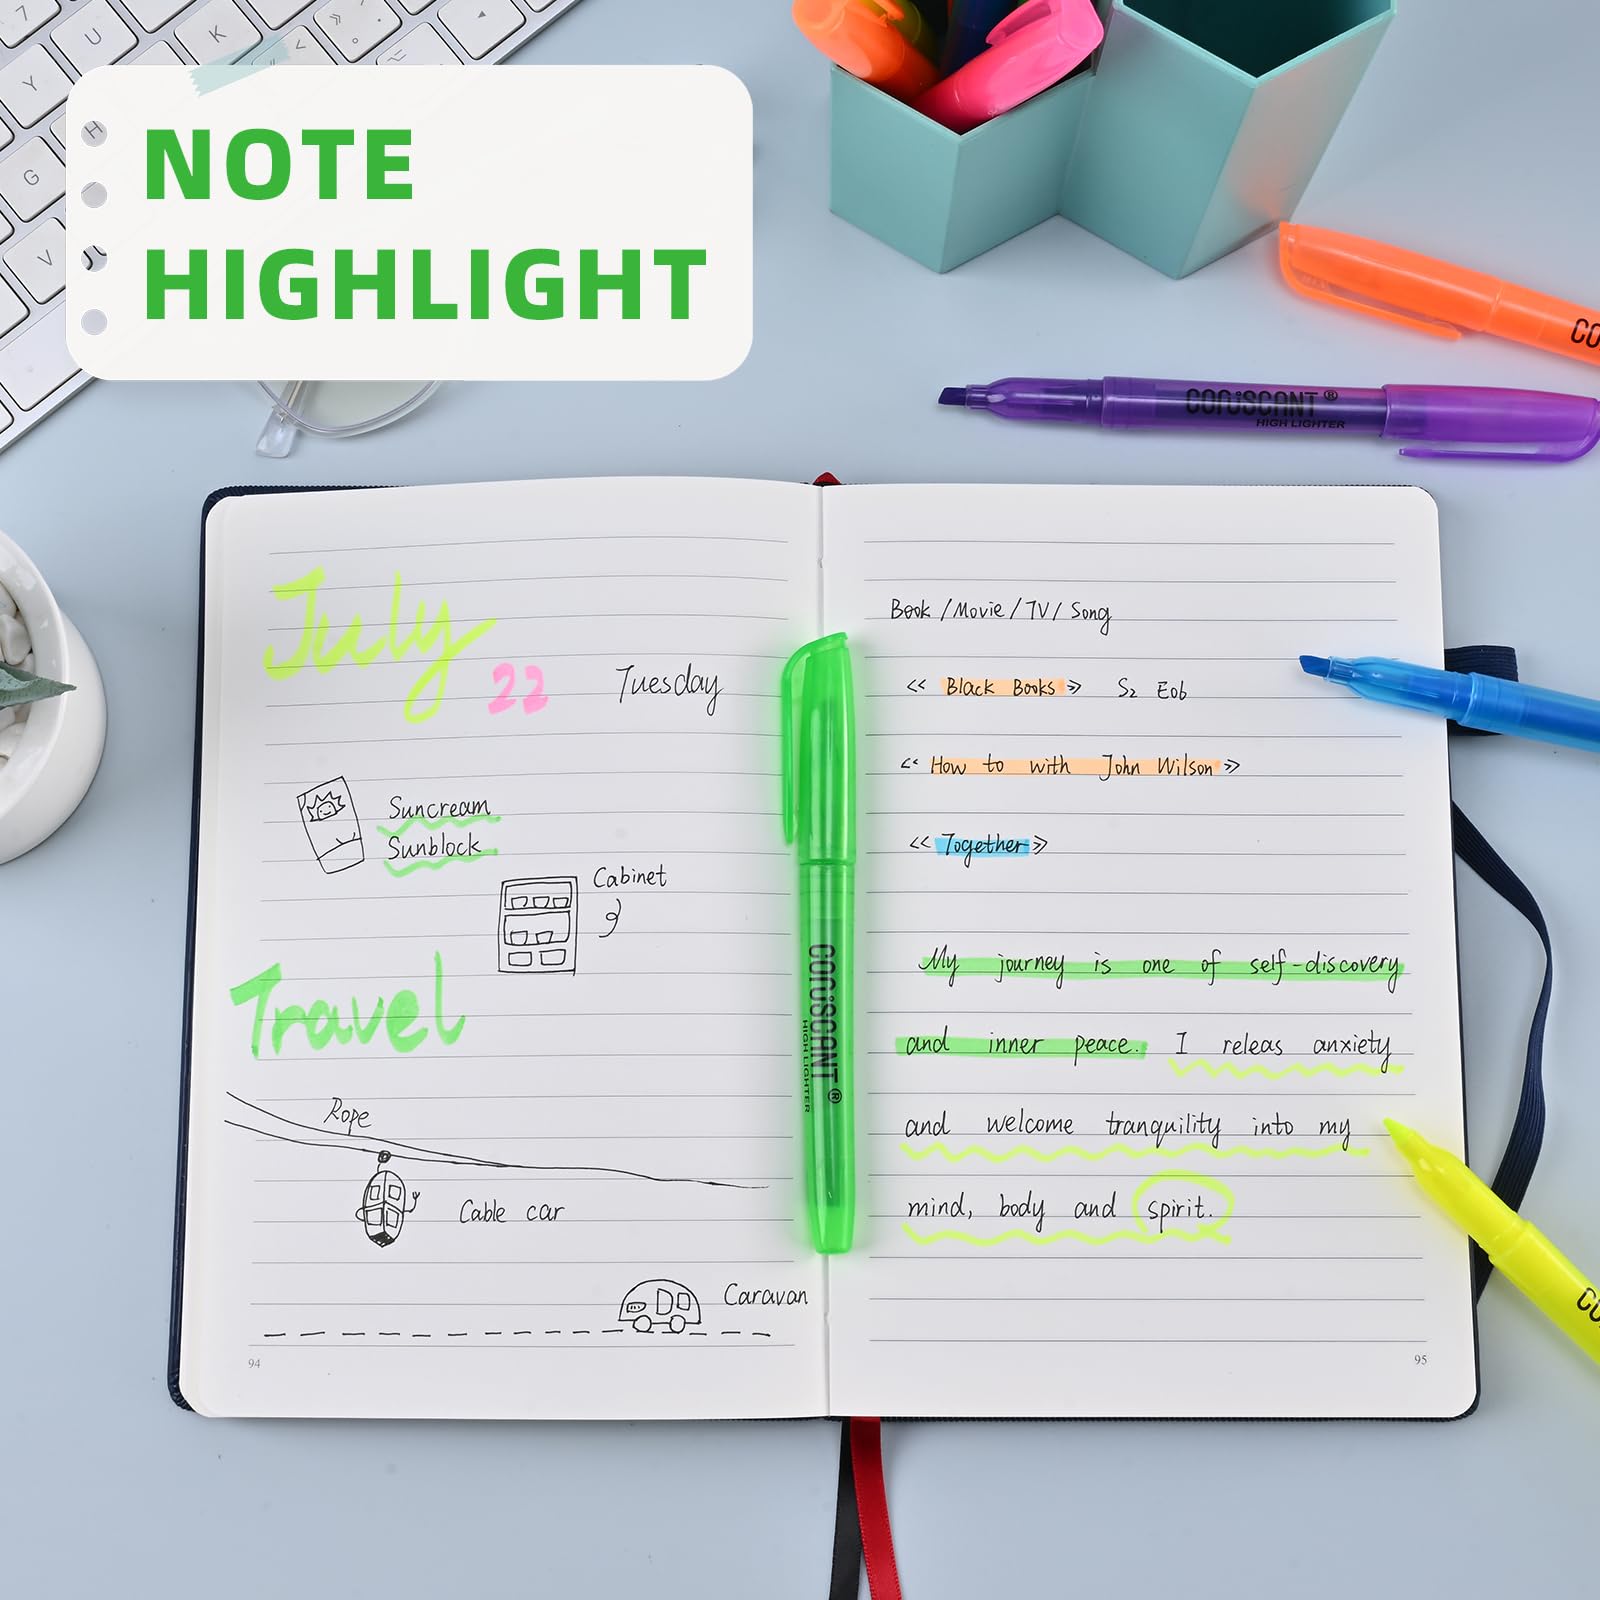 NOTE
HIGHLIGHT
7
U
K
Y
H
G
V
CORUSCANT ®
HIGH LIGHTER
July
22
Tuesday
Suncream
Sunblock
Cabinet
Travel
Rope
Cable car
Caravan
94
CORUSCANT ®
HIGH LIGHTER
Book / Movie / TV / Song
<< Black Books >> S2 E06
<< How to with John Wilson >>
<< Together >>
My journey is one of self-discovery
and inner peace. I releas anxiety
and welcome tranquility into my
mind, body and spirit.
95